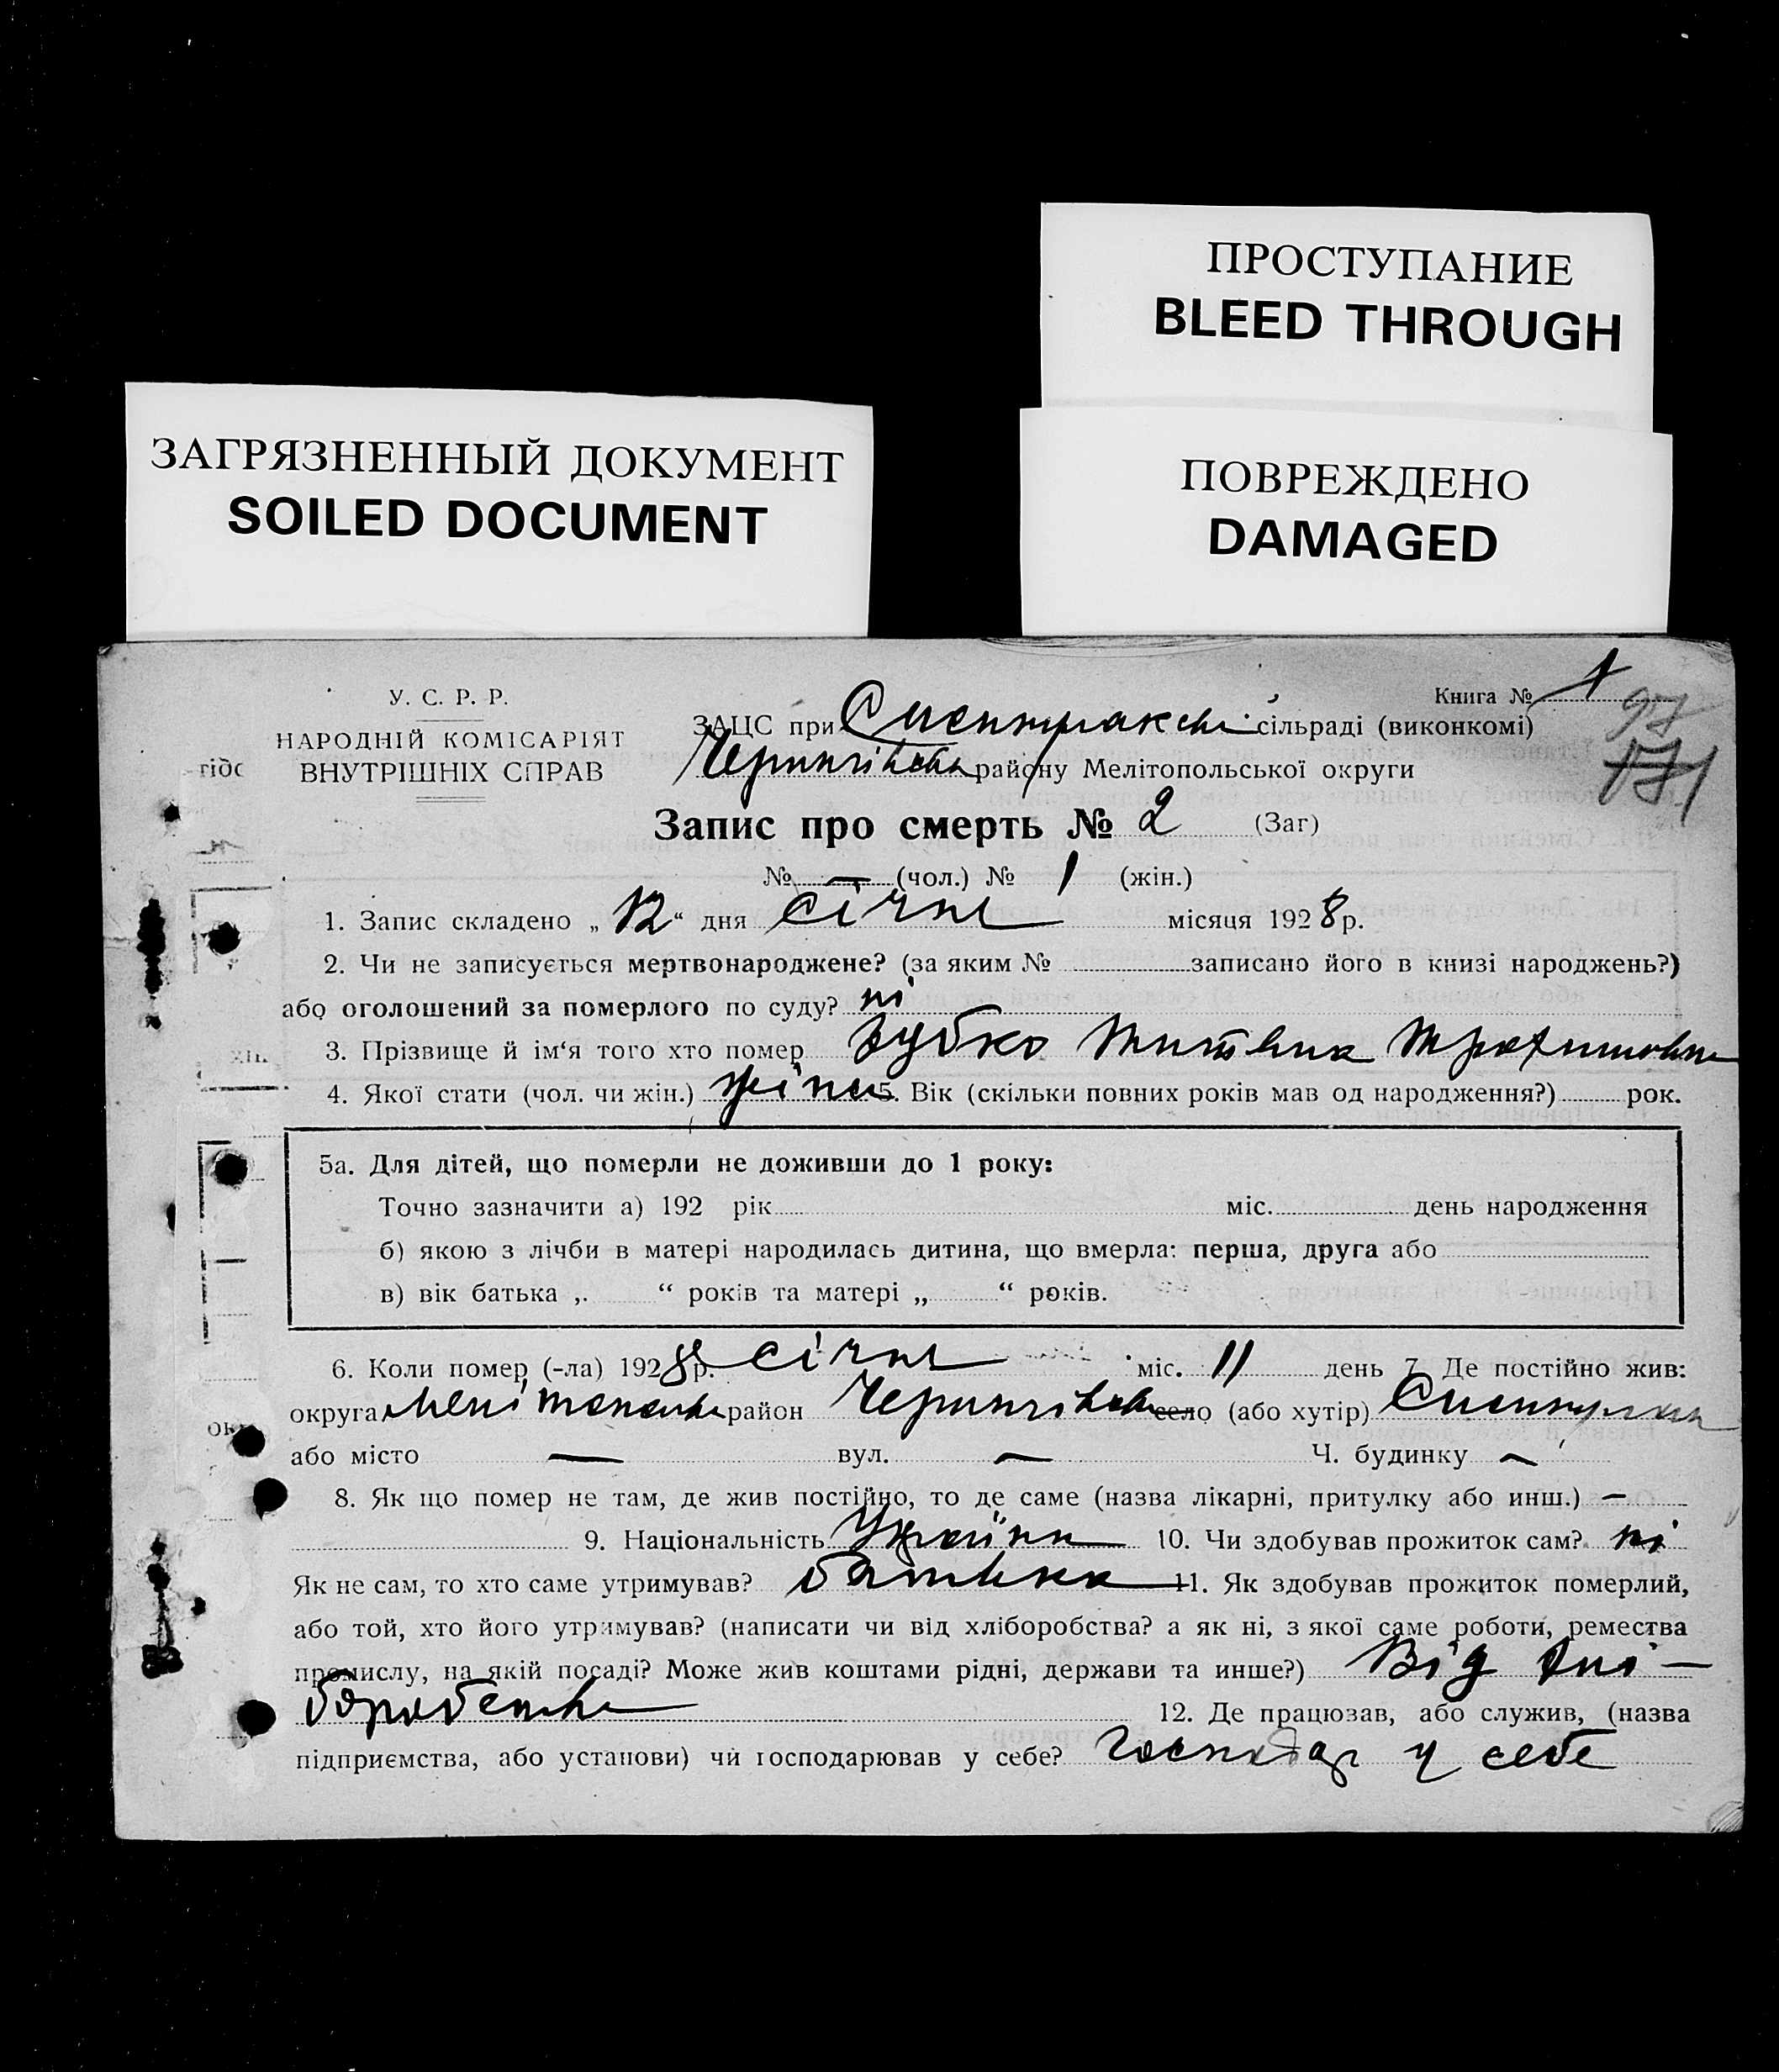 ПРОСТУПАНИЕ
BLEED THROUGH
ЗАГРЯЗНЕННЫЙ ДОКУМЕНТ
SOILED DOCUMENT
ПОВРЕЖДЕНО
DAMAGED
У. С. Р. Р.
НАРОДНІЙ КОМІСАРІЯТ
ВНУТРІШНІХ СПРАВ
Книга № 1
97
171
ЗАЦС при сільраді (виконкомі)
району Мелітопольської округи
Запис про смерть № 2 (Заг)
№ — (чол.) № 1 (жін.)
1. Запис складено „12“ дня січня місяця 1928 р.
2. Чи не записується мертвонароджене? (за яким № записано його в книзі народжень?)
або оголошений за померлого по суду? ні
3. Прізвище й ім‘я того хто помер Зубко Трохимовна
4. Якої стати (чол. чи жін.) жіно 5. Вік (скільки повних років мав од народження?) рок.
5а. Для дітей, що померли не доживши до 1 року:
Точно зазначити а) 192 рік міс. день народження
б) якою з лічби в матері народилась дитина, що вмерла: перша, друга або
в) вік батька „ “ років та матері „ “ років.
6. Коли помер (-ла) 1928 р. січня міс. 11 день 7. Де постійно жив:
округа район село (або хутір)
або місто — вул. — Ч. будинку —
8. Як що помер не там, де жив постійно, то де саме (назва лікарні, притулку або инш.) —
9. Національність Україн 10. Чи здобував прожиток сам? ні
Як не сам, то хто саме утримував? батько 11. Як здобував прожиток померлий,
або той, хто його утримував? (написати чи від хліборобства? а як ні, з якої саме роботи, ремества
промислу, на якій посаді? Може жив коштами рідні, держави та инше?) Від хлі-
боробства 12. Де працював, або служив, (назва
підприємства, або установи) чи господарював у себе? господар у себе